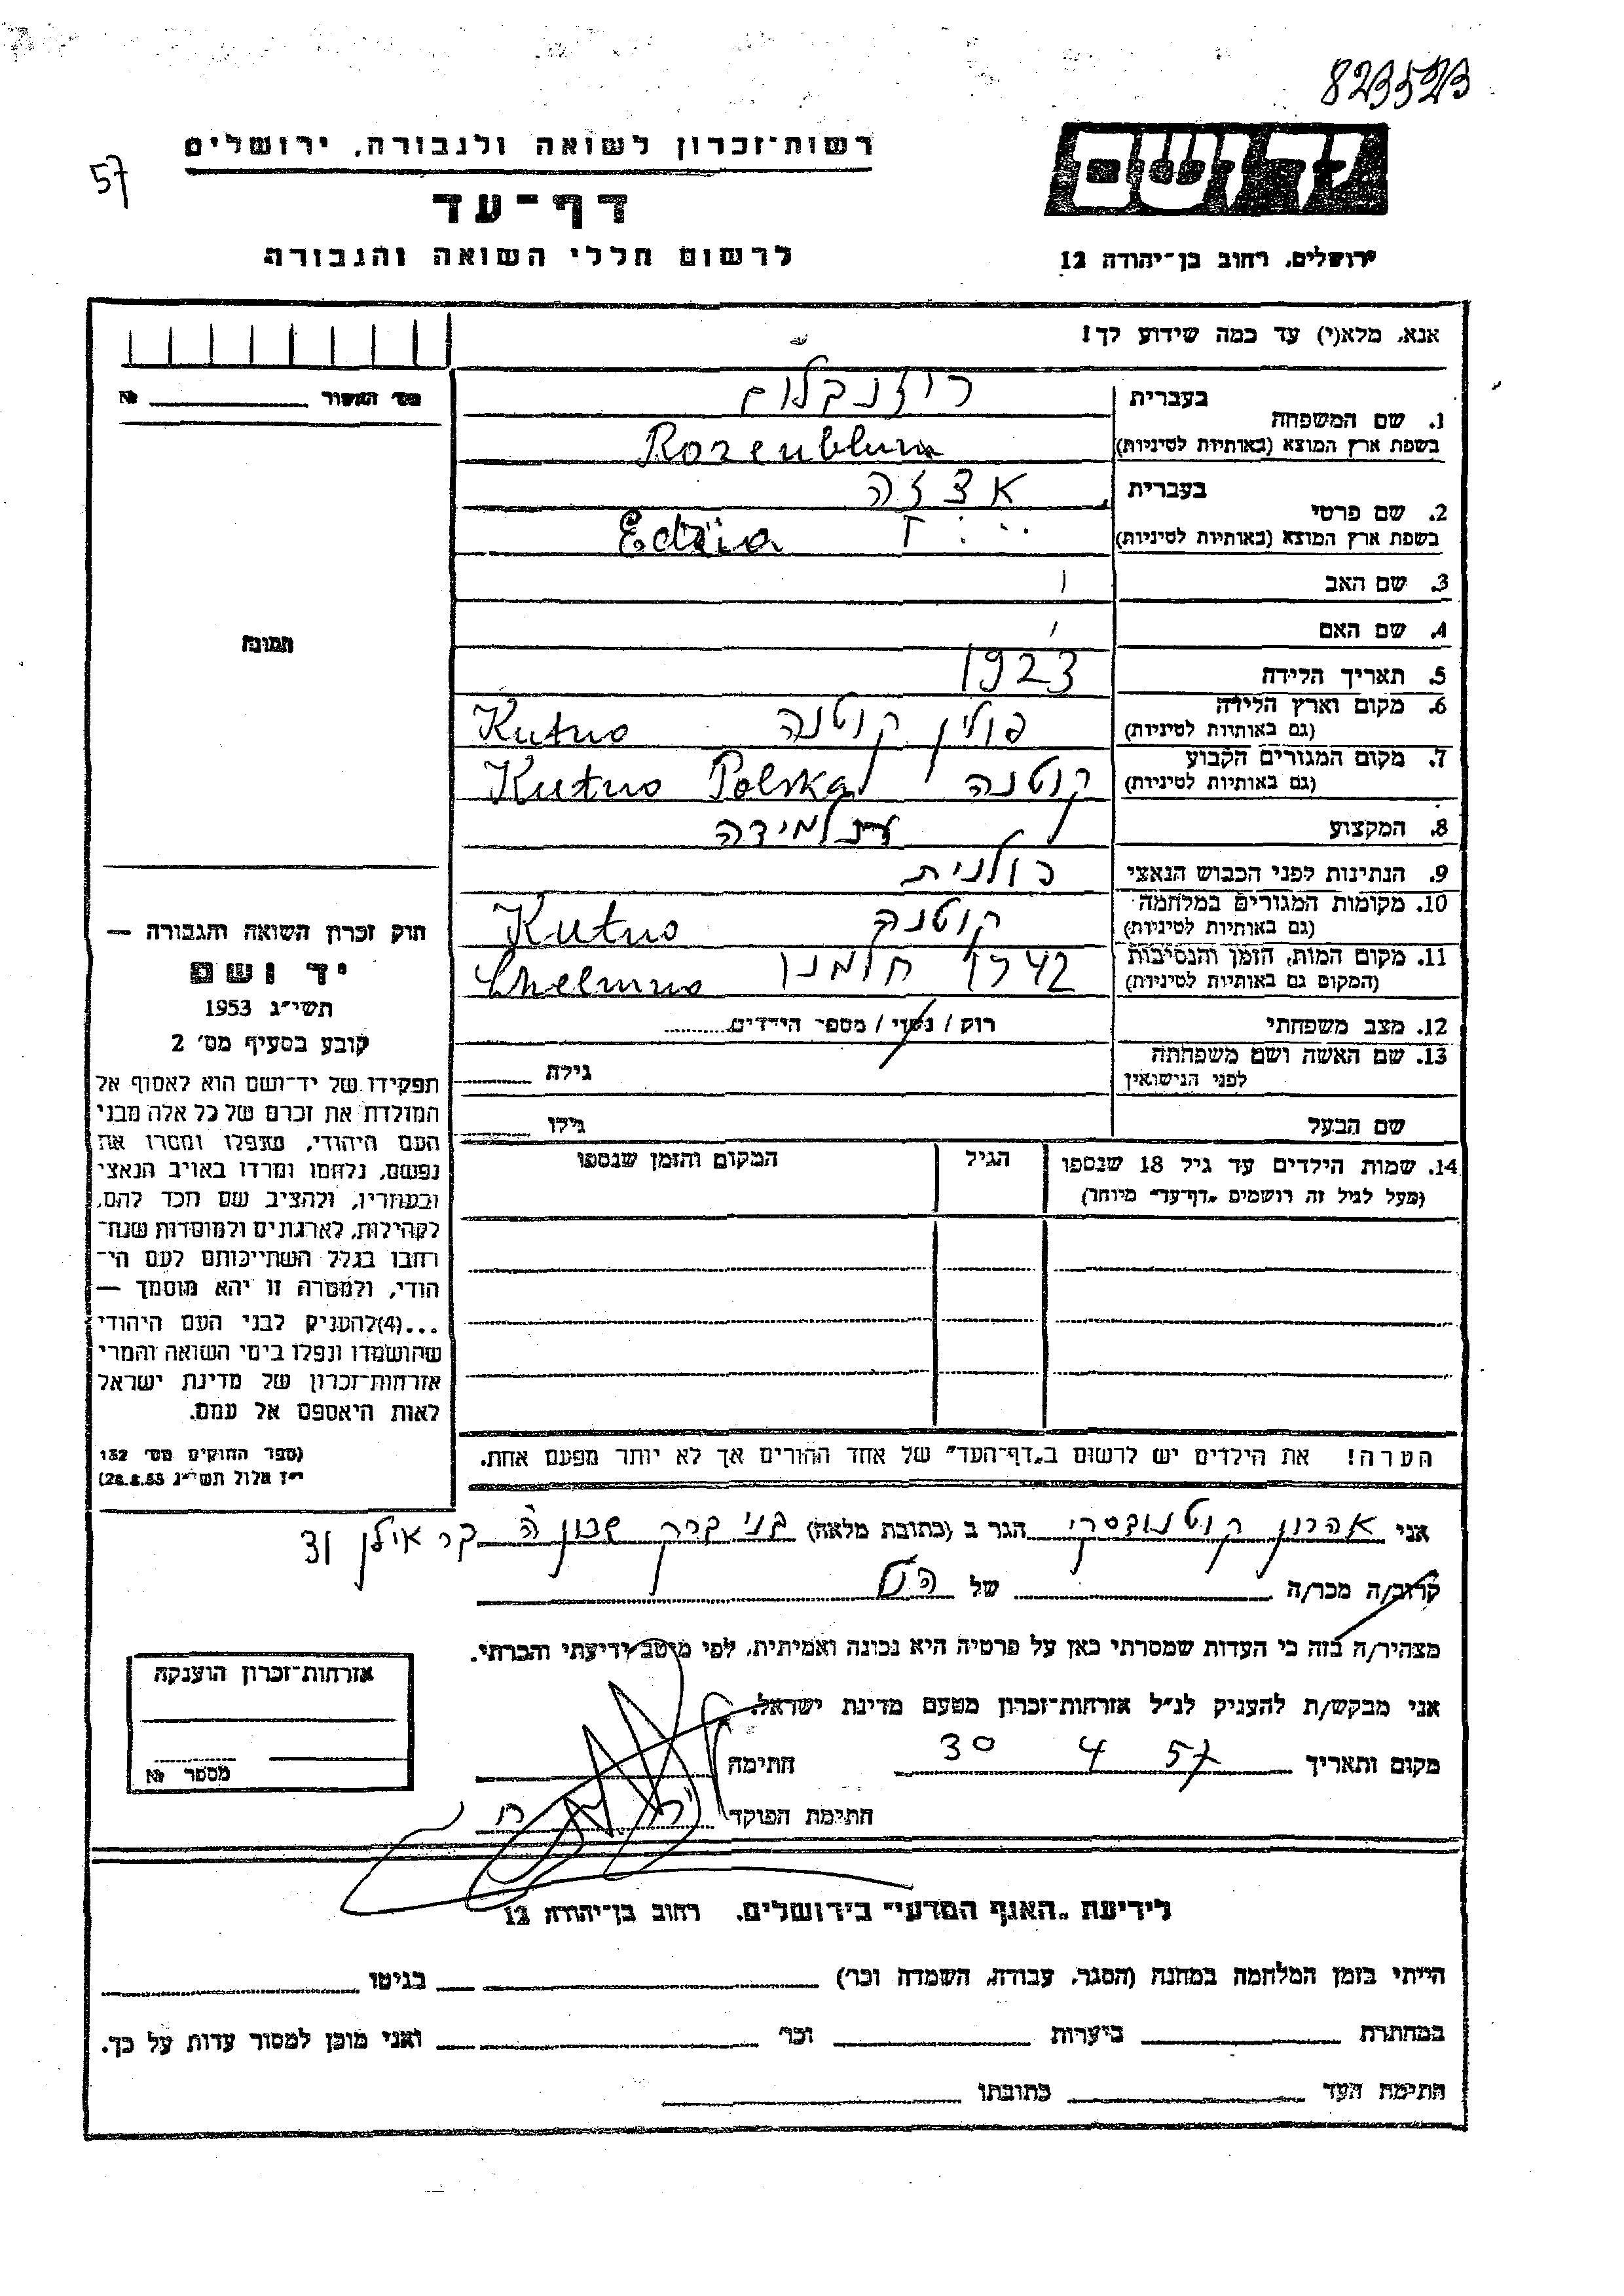 823523
57
רשות־זכרון לשואה ולגבורה, ירושלים
יד ושם
דף־עד
לרשום חללי השואה והגבורה
ירושלים, רחוב בן־יהודה 12
אנא, מלא(י) עד כמה שידוע לך!
מס׳ האשור № 
1. שם המשפחה בעברית רוזנבלום
בשפת ארץ המוצא (באותיות לטיניות) Rozenblum
2. שם פרטי בעברית
בשפת ארץ המוצא (באותיות לטיניות)
3. שם האב
4. שם האם
תמונה
5. תאריך הלידה 1923
6. מקום וארץ הלידה (גם באותיות לטיניות) פולין קוטנה Kutno
7. מקום המגורים הקבוע (גם באותיות לטיניות) קוטנה Kutno Polska
8. המקצוע תלמידה
9. הנתינות לפני הכבוש הנאצי פולנית
10. מקומות המגורים במלחמה (גם באותיות לטיניות) קוטנה Kutno
11. מקום המות, הזמן והנסיבות (המקום גם באותיות לטיניות) 1942 חלמנו Chelmno
12. מצב משפחתי רווק / נשוי / מספר הילדים
13. שם האשה ושם משפחתה לפני הנישואין גילה
שם הבעל גילו
14. שמות הילדים עד גיל 18 שנספו הגיל המקום והזמן שנספו
(מעל לגיל זה רושמים "דף־עד" מיוחד)
חוק זכרון השואה והגבורה —
יד ושם
תשי״ג 1953
קובע בסעיף מס׳ 2
תפקידו של יד־ושם הוא לאסוף אל
המולדת את זכרם של כל אלה מבני
העם היהודי, שנפלו ומסרו את
נפשם, נלחמו ומרדו באויב הנאצי
ובעוזריו, ולהציב שם וזכר להם,
לקהילות, לארגונים ולמוסדות שנח־
רבו בגלל השתייכותם לעם הי־
הודי, ולמטרה זו יהא מוסמך —
...(4) להעניק לבני העם היהודי
שהושמדו ונפלו בימי השואה והמרי
אזרחות־זכרון של מדינת ישראל
לאות היאספם אל עמם.
(ספר החוקים מס׳ 132
י״ז אלול תשי״ג 28.8.53)
הערה! את הילדים יש לרשום ב"דף־העד" של אחד ההורים אך לא יותר מפעם אחת.
אני אהרון קוטנובסקי הגר ב (כתובת מלאה) בני ברק שכון ה
קרוב/ה מכר/ה של הנ״ל
מצהיר/ה בזה כי העדות שמסרתי כאן על פרטיה היא נכונה ואמיתית, לפי מיטב ידיעתי והכרתי.
אני מבקש/ת להעניק לנ״ל אזרחות־זכרון מטעם מדינת ישראל.
אזרחות־זכרון הוענקה
מספר №
מקום ותאריך 30 4 57 חתימה
חתימת הפוקד
לידיעת "האגף המדעי" בירושלים, רחוב בן־יהודה 12
הייתי בזמן המלחמה במחנה (הסגר, עבודה, השמדה וכו׳) בגיטו
במחתרת ביערות וכו׳ ואני מוכן למסור עדות על כך.
חתימת העד כתובתו